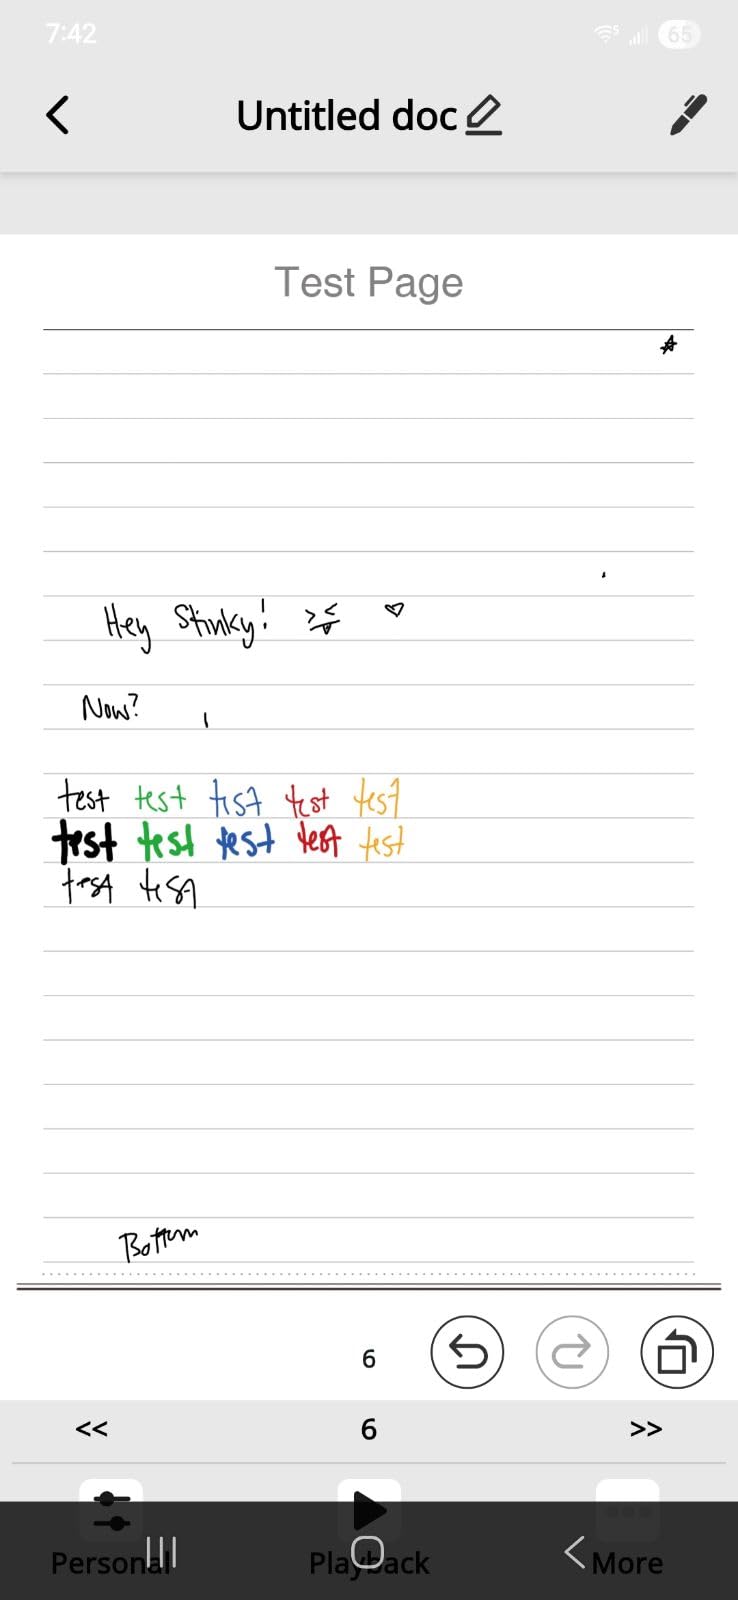 7:42 5 65
Untitled doc
Test Page
Hey Stinky!
Now?
test test test test test
test test test test test
test test
Bottom
6
<< 6 >>
Personal Playback More